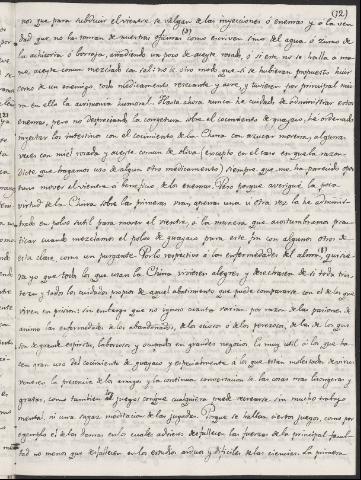 (12)
nos que para subducir el vientre se valgan de las injecciones ó enemas y a la ver-
dad que no las toman de nuestras oficinas como convien sino del agua ó zumo de
(3)
la achicoria ó borraja, añadiendo un poco de aceyte rosado, ó si este no se halla a ma-
no, aceyte comun mezclado con sal: ni de otro modo que si se hubieran propuesto huir
como de un enemigo, todo medicamento y tuviesen por principal
en ella la humoral. Hasta ahora nunca he cuidado de administrar estos
enemas, pero no despreciando la congetura sobre el cocimiento de guayaco, he ordenado
injectar los intestinos con el cocimiento de la China con azucar morena, algunas
veces con miel rosada y aceyte comun de oliva (excepto en el caso en que la razon
dicte, que hagamos uso de algun otro medicamento) siempre que me ha parecido opor-
tuno mover el vientre a beneficio de los enemas. Pero porque averigüé la poca
virtud de la China sobre las primeras vias, apenas una u otra vez la he adminis-
trado en polvo sutil para mover el vientre, a la manera que acostumbramos prac-
ticar cuando mezclamos el polvo de guayaco para este fin con algunos otros de
esta clase, como un purgante. Por lo respectivo á las enfermedades del alma, (3) quisie-
ra yo que todos los que usan la China viviesen alegres y desecharan de si toda tris-
teza y todos los cuidados propios de aquel abatimiento que puede compararse con el de los que
viven en prision: sin embargo que no ignoro cuanto varian por razon de las pasiones de
animo las enfermedades de los abandonados, de los ociosos o de los perezosos, de las de los que
son de grande espiritu, laboriosos y ocupados en grandes negocios. Es muy util á los que ha-
cen gran uso del cocimiento de guayaco y especialmente a los que estan molestados de vicio
venereo la presencia de los amigos y la continua conversacion de las cosas mas lisongeras y
gratas, como tambien los juegos con que cualquiera puede recrearse sin mucho trabajo
mental, ni una sagaz meditacion de las jugadas. Porque se hallan ciertos juegos, como por
egemplo el de las damas en los cuales desfallecen las fuerzas de la principal facul-
tad no menos que desfallecen en los estudios arduos y dificiles de las ciencias. La primera